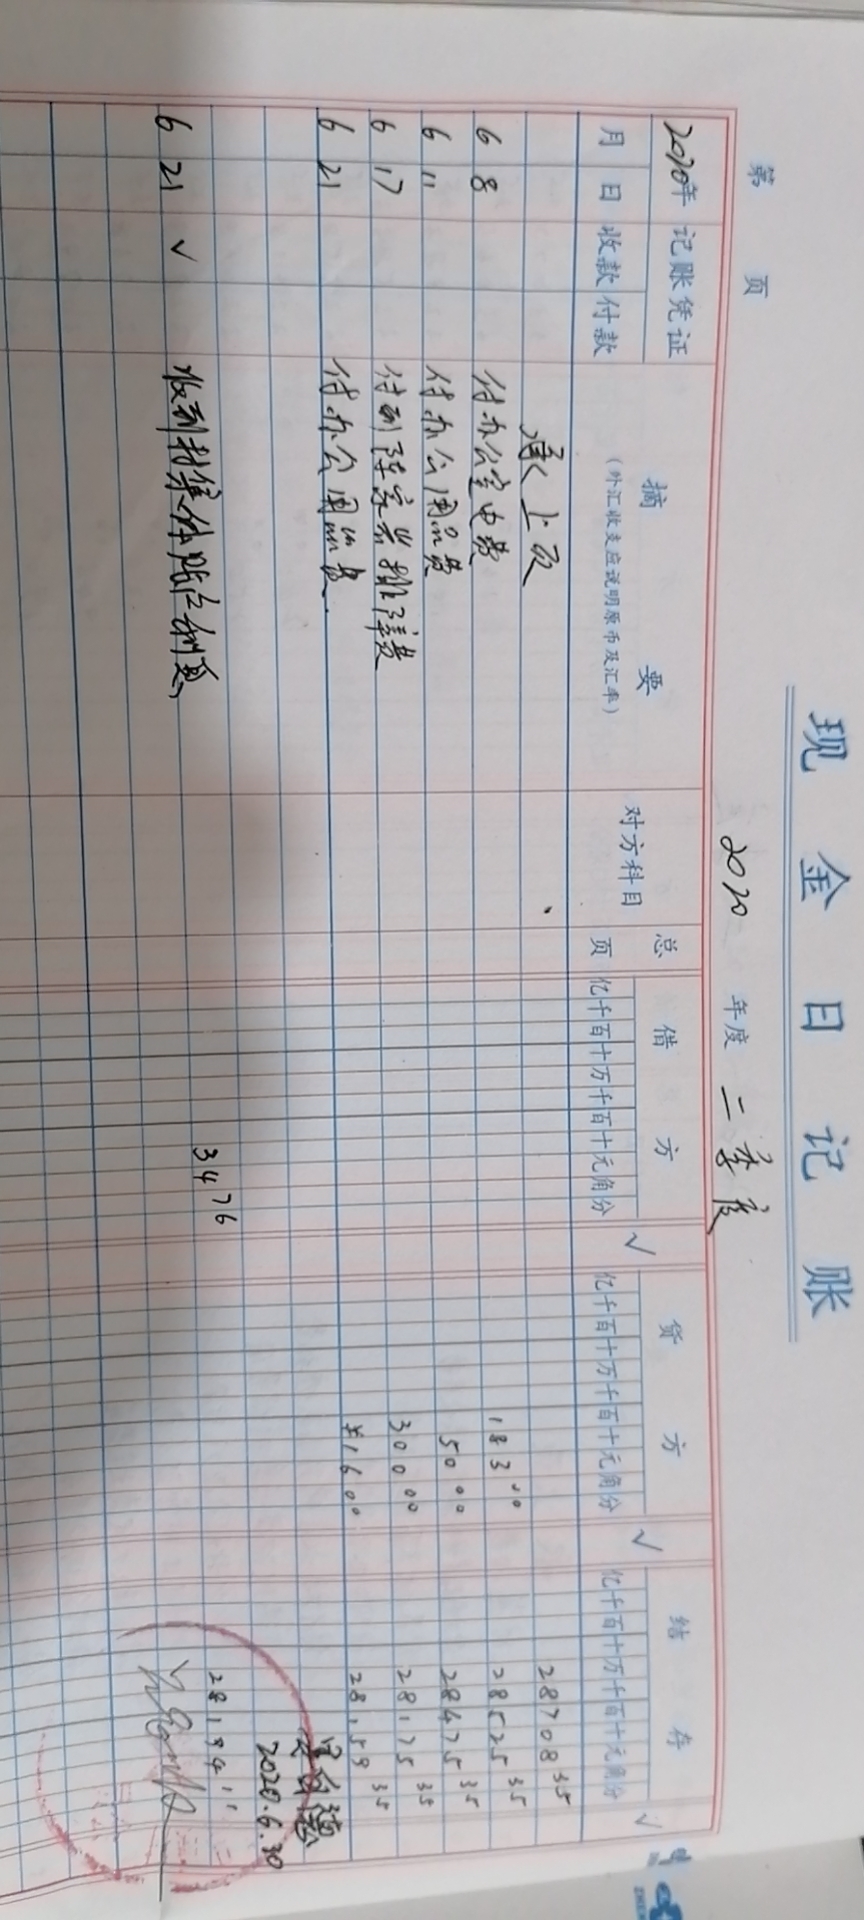 现金日记账
第 页
2020 年度 二季度
2020年 记账凭证 摘要 对方科目 总页 借方 √ 贷方 √ 结存 √
月 日 收款 付款 (外汇收支应说明原币及汇率) 亿千百十万千百十元角分 亿千百十万千百十元角分 亿千百十万千百十元角分
承上页 28708 35
6 8 付办公室电费 183 00 28525 35
6 11 付办公用品费 50 00 28475 35
6 17 付 陈家 费 300 00 28175 35
6 21 付办公用品费 ¥16 00 28159 35
2020.6.30
6 21 √ 收到村集体账户利息 34 76 28194 11